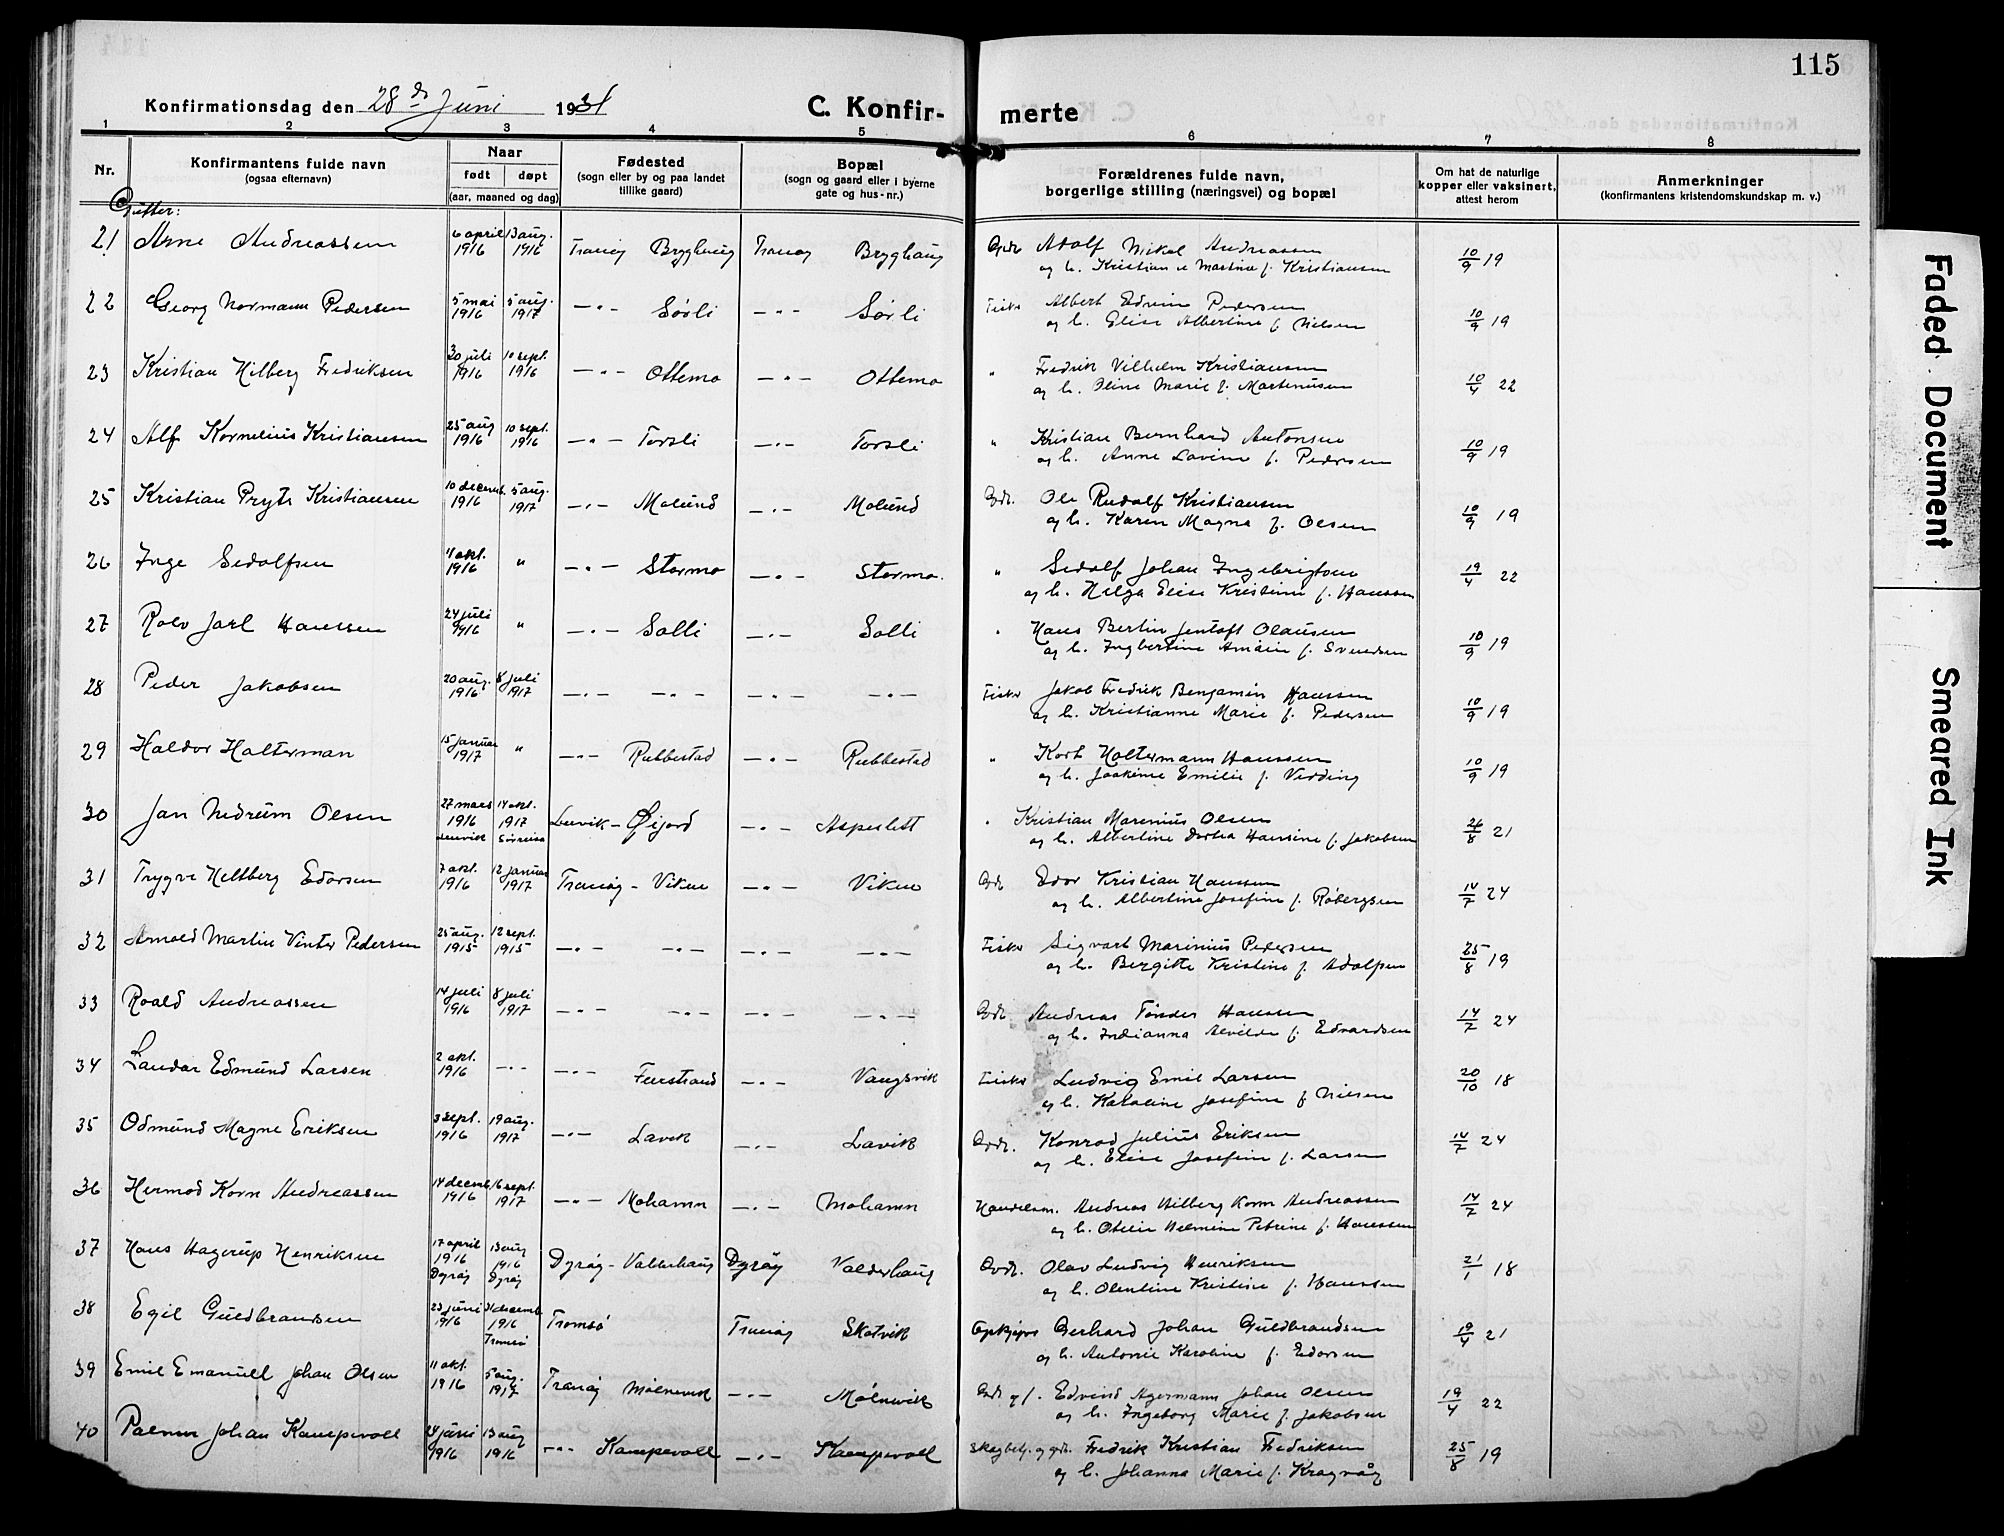 115
Konfirmationsdag den 28de Juni 1931
C. Konfirmerte
1 2 3 4 5 6 7 8
Nr.
Konfirmantens fulde navn
(ogsaa efternavn)
Naar
født døpt
(aar, maaned og dag)
Fødested
(sogn eller by og paa landet
tillike gaard)
Bopæl
(sogn og gaard eller i byerne
gate og hus-nr.)
Forældrenes fulde navn,
borgerlige stilling (næringsvei) og bopæl
Om hat de naturlige
kopper eller vaksinert,
attest herom
Anmerkninger
(konfirmantens kristendomskundskap m. v.)
Gutter:
21 Arne Andreassen 6 april 1916 13 aug. 1916 Tranøy Brygghaug Tranøy Brygghaug Gbr. Adolf Nikol Andreassen
og h. Kristiane Martine f. Kristiansen 10/9 19
22 Georg Normann Pedersen 5 mai 1916 5 aug. 1917 —"— Sørli —"— Sørli Fisker Albert Edvin Pedersen
og h. Elise Albertine f. Nielsen 10/9 19
23 Kristian Hilberg Fredriksen 30 juli 1916 10 sept. 1916 —"— Ottemo —"— Ottemo " Fredrik Vilhelm Kristiansen
og h. Oline Marie f. Martenusen 10/4 22
24 Alf Kornelius Kristiansen 25 aug 1916 10 sept. 1916 —"— Torsli —"— Torsli " Kristian Bernhard Antonsen
og h. Anne Lovine f. Pedersen 10/9 19
25 Kristian Pryts Kristiansen 10 decemb. 1916 5 aug. 1917 —"— Molund —"— Molund Gbr. Ole Rudolf Kristiansen
og h. Karen Magna f. Olsen 10/9 19
26 Inge Sedolfsen 4 okt. 1916 " —"— Stormo —"— Stormo. " Sedolf Johan Ingebrigtsen
og h. Helga Elise Kristine f. Hanssen 19/4 22
27 Rolv Jarl Hanssen 24 juli 1916 " —"— Solli —"— Solli " Hans Bertin Jentoft Olausen
og h. Ingbertine Amalie f. Svendsen 10/9 19
28 Peder Jakobsen 20 aug. 1916 8 juli 1917 —"— —"— —"— —"— Fisker Jakob Fredrik Benjamin Hanssen
og h. Kristianne Marie f. Pedersen 10/9 19
29 Haldor Holterman 15 januar 1917 " —"— Rubbestad —"— Rubbestad " Kort Holtermann Hanssen
og h. Joakime Emilie f. Verding 10/9 19
30 Jan Nedrum Olsen 27 mars 1916 Lenvik 14 okt. 1917 Sørreisa Lenvik - Øijord —"— Aspeslett " Kristian Marenius Olsen
og h. Albertine Dortea Hansine f. Jakobsen 26/8 21
31 Trygve Heltberg Edorsen 7 okt. 1916 12 januar 1917 Tranøy - Viken —"— Viken Gbr. Edor Kristian Hanssen
og h. Albertine Josefine f. Røbergsen 14/7 24
32 Arnold Martin Vinter Pedersen 25 aug. 1915 12 sept. 1915 —"— —"— —"— —"— Fisker Sigvart Marinius Pedersen
og h. Bergitte Kristine f. Adolfsen 25/8 19
33 Roald Andreassen 14 juli 1916 8 juli 1917 —"— —"— —"— —"— Gbr. Andreas Tønder Hanssen
og h. Indianna Alvilde f. Edvardsen 14/7 24
34 Landor Edmund Larsen 2 okt. 1916 —"— —"— Finstrand —"— Vangsvik Fisker Ludvig Emil Larsen
og h. Karoline Josefine f. Nielsen 20/10 18
35 Odmund Magne Eriksen 3 sept. 1916 19 aug. 1917 —"— Lavik —"— Lavik Gbr. Konrad Julius Eriksen
og h. Elise Josefine f. Larsen 14/7 24
36 Hermod Korn Andreassen 14 decemb. 1916 16 sept. 1917 —"— Mohamn —"— Mohamn Handelsm. Andreas Hilberg Korn Andreassen
og h. Otelie Helmine Petrine f. Hanssen 14/7 24
37 Hans Hagerup Henriksen 17 april 1916 Dyrøy 13 aug 1916 Dyrøy Dyrøy - Valderhaug Dyrøy Valderhaug Gbr. Olav Ludvig Henriksen
og h. Olentine Kristine f. Hanssen 21/1 18
38 Egil Guldbrandsen 23 juni 1916 31 decemb. 1916 Tromsø Tromsø Tranøy Skatvik Opkjøper Gerhard Johan Guldbrandsen
og h. Antonie Karoline f. Edorsen 19/4 21
39 Emil Emanuell Johan Olsen 11 okt. 1916 5 aug. 1917 Tranøy Mølnevik —"— Mølnevik Gbr. og f. Edvind Agermann Johan Olsen
og h. Ingeborg Marie f. Jakobsen 19/4 22
40 Palmer Johan Kampevoll 24 juni 1916 13 aug 1916 —"— Kampevoll —"— Kampevoll Skogbetj. og gbr. Fredrik Kristian Fredriksen
og h. Johanna Marie f. Kragvåg 25/8 19
Faded Document
Smeared Ink